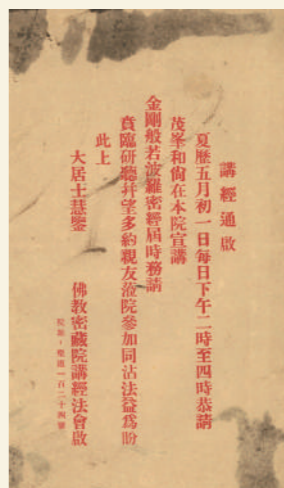 講經通啟
夏歷五月初一日每日下午二時至四時恭請
茂峯和尙在本院宣講
金剛般若波羅密經屆時務請
賁臨硏聽幷望多約親友蒞院參加同沾法益爲盼
此上
大居士慧鑒
佛敎密藏院講經法會啟
一百二十四號